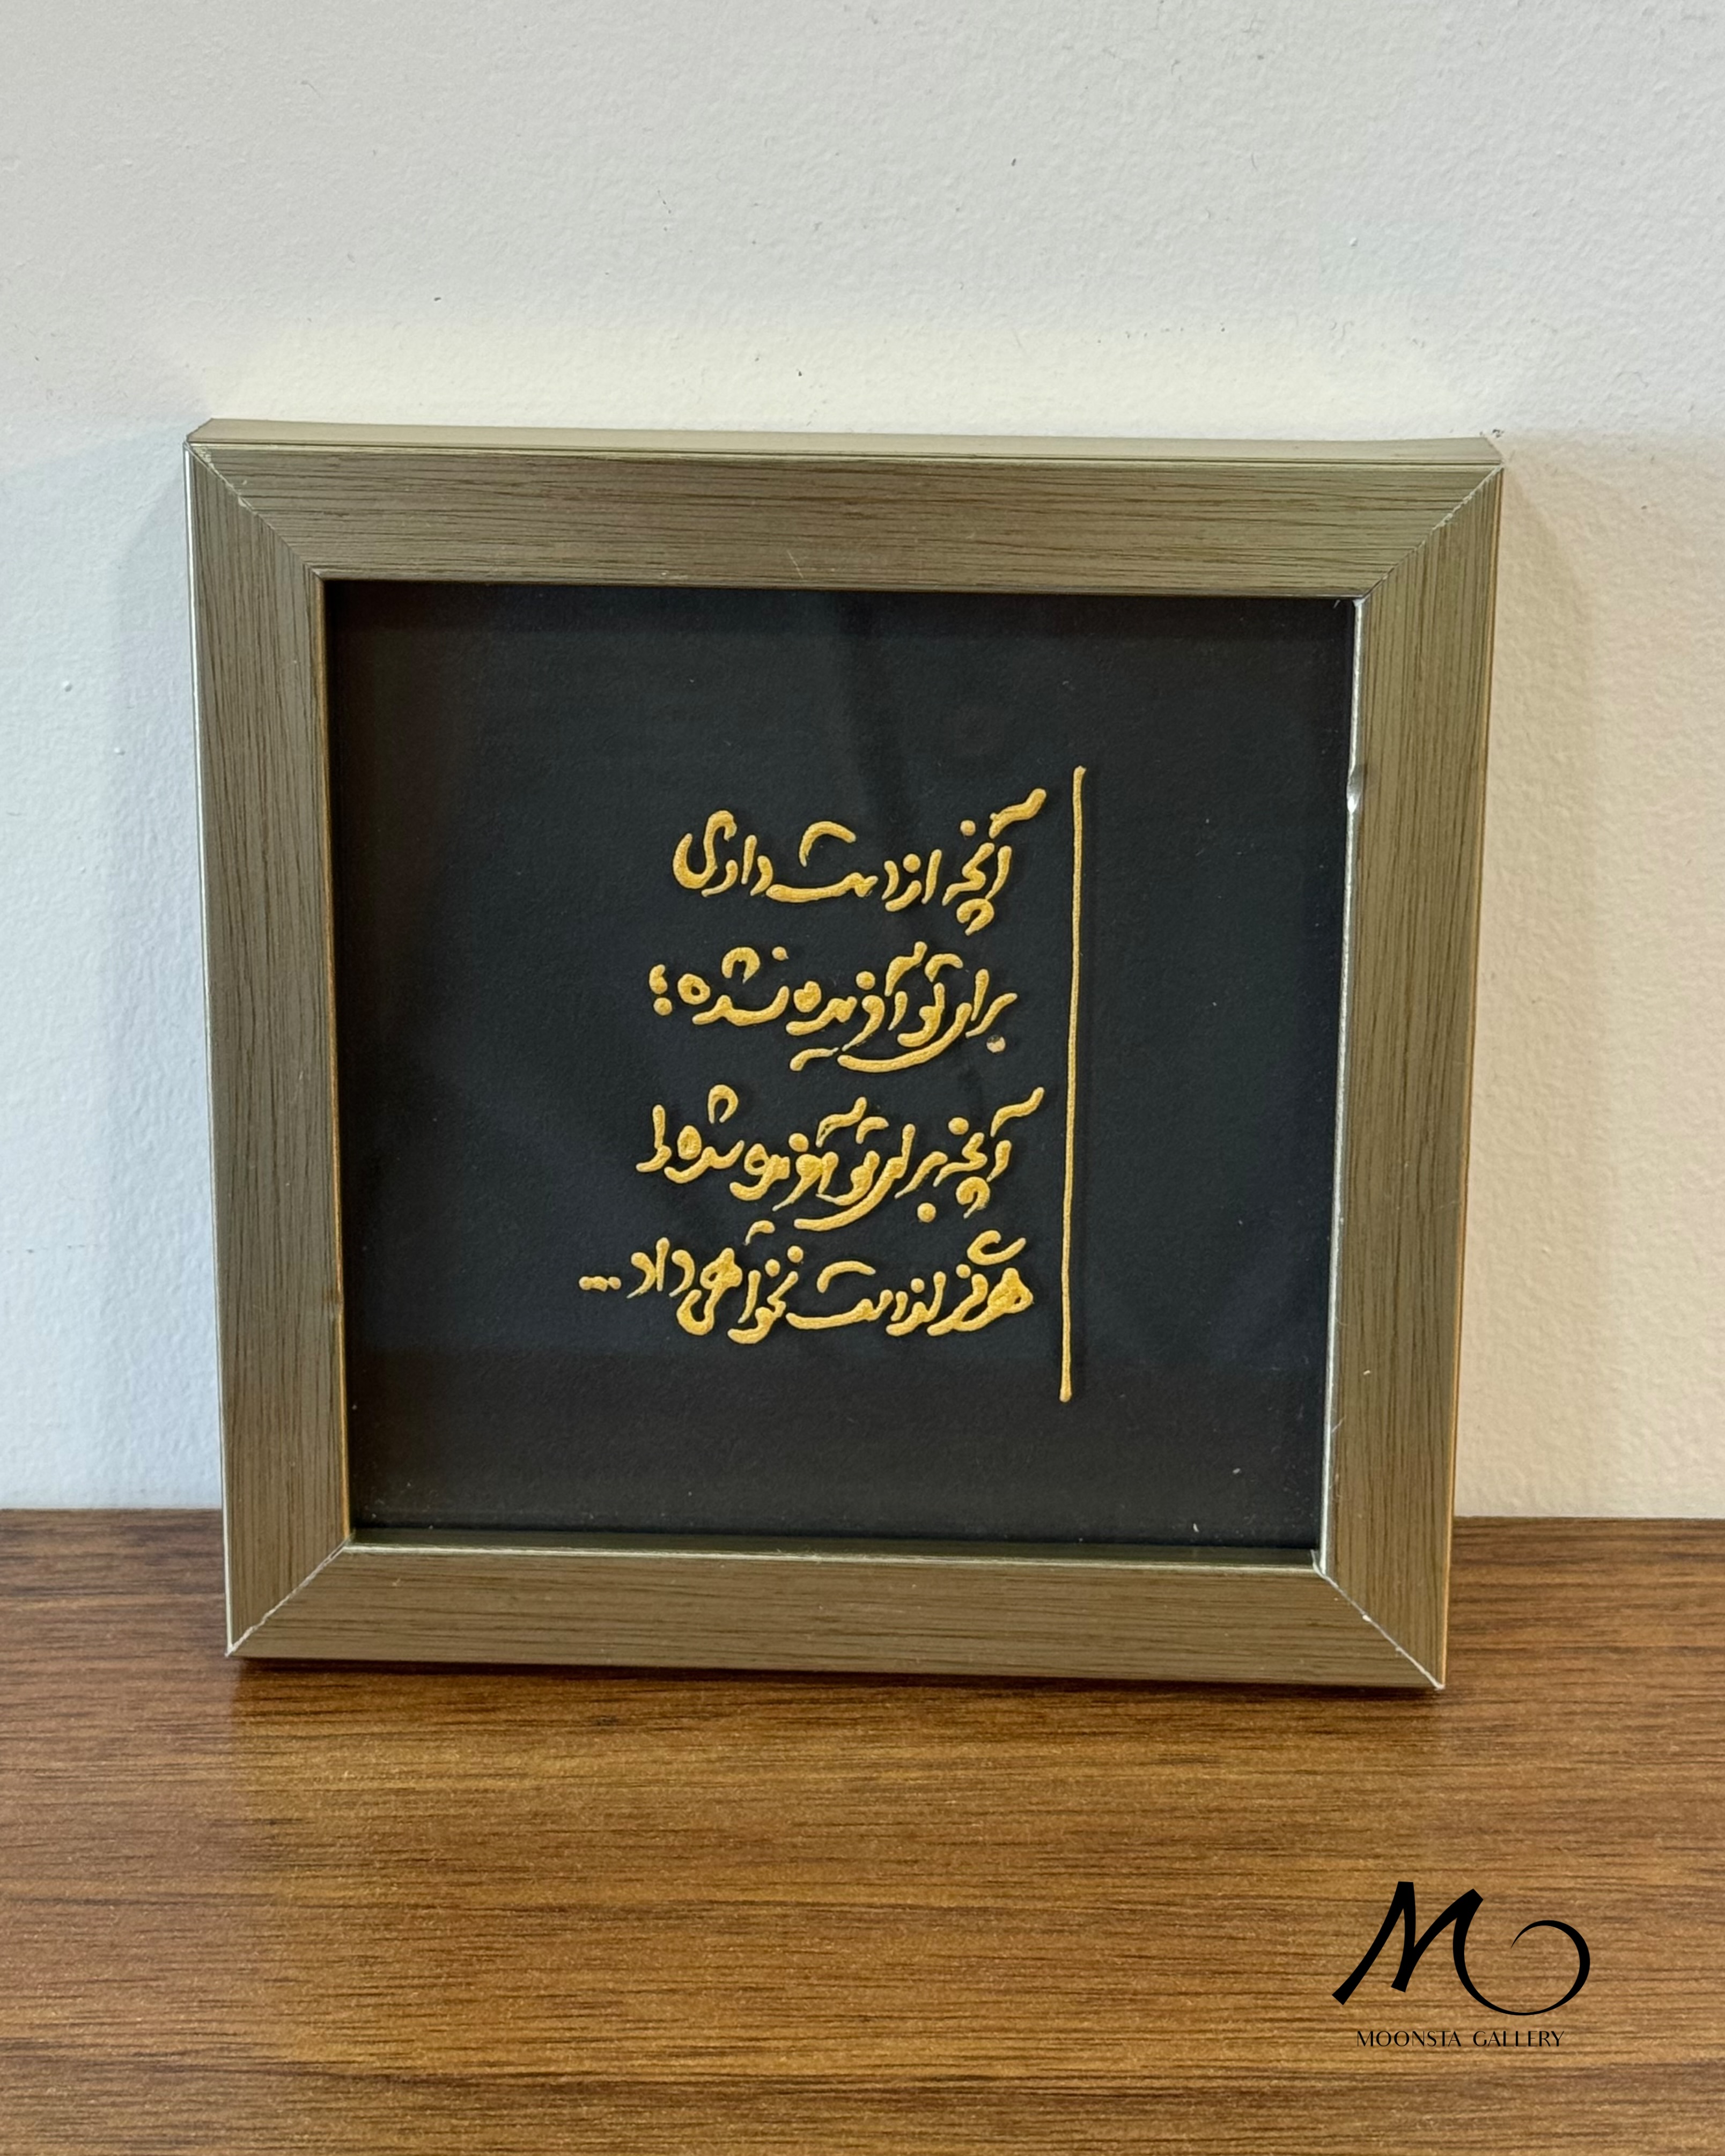 آنچه از دست دادی
برای تو آفریده نشده؛
آنچه برای تو آفریده شده را
هرگز از دست نخواهی داد...
MOONSTA GALLERY